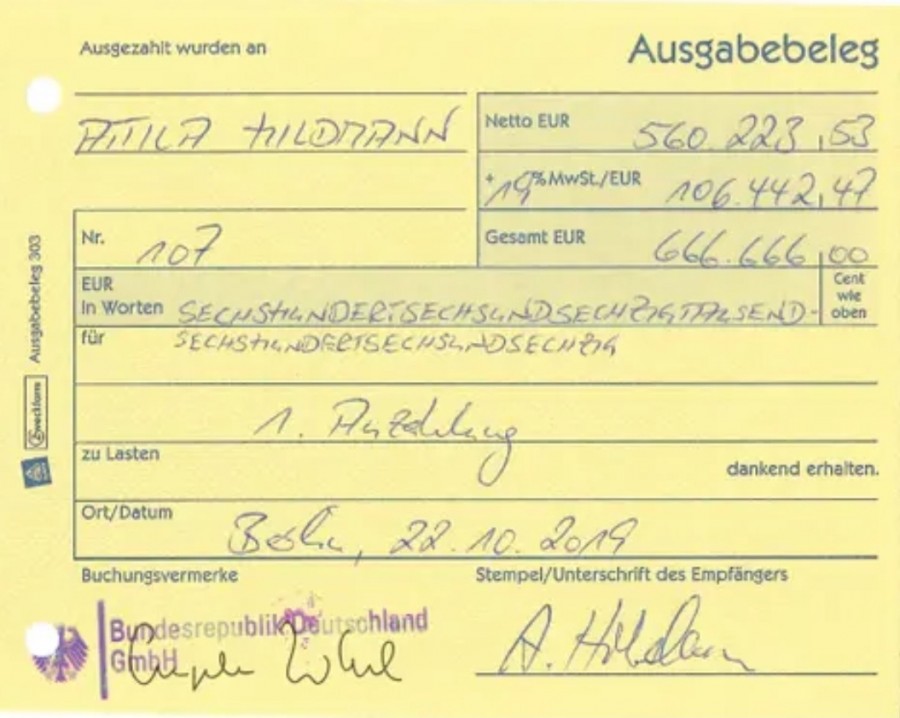 Ausgezahlt wurden an
Ausgabebeleg
ATTILA HILDMANN
Netto EUR 560.223,53
+ 19 % MwSt./EUR 106.442,47
Nr. 107
Gesamt EUR 666.666,00
EUR
in Worten SECHSHUNDERTSECHSUNDSECHZIGTAUSEND-
Cent
wie
oben
für SECHSHUNDERTSECHSUNDSECHZIG
1. Anzahlung
zu Lasten
dankend erhalten.
Ort/Datum
Berlin, 22.10.2019
Buchungsvermerke
Stempel/Unterschrift des Empfängers
Bundesrepublik Deutschland
GmbH
A. Hildmann
Zweckform Ausgabebeleg 303